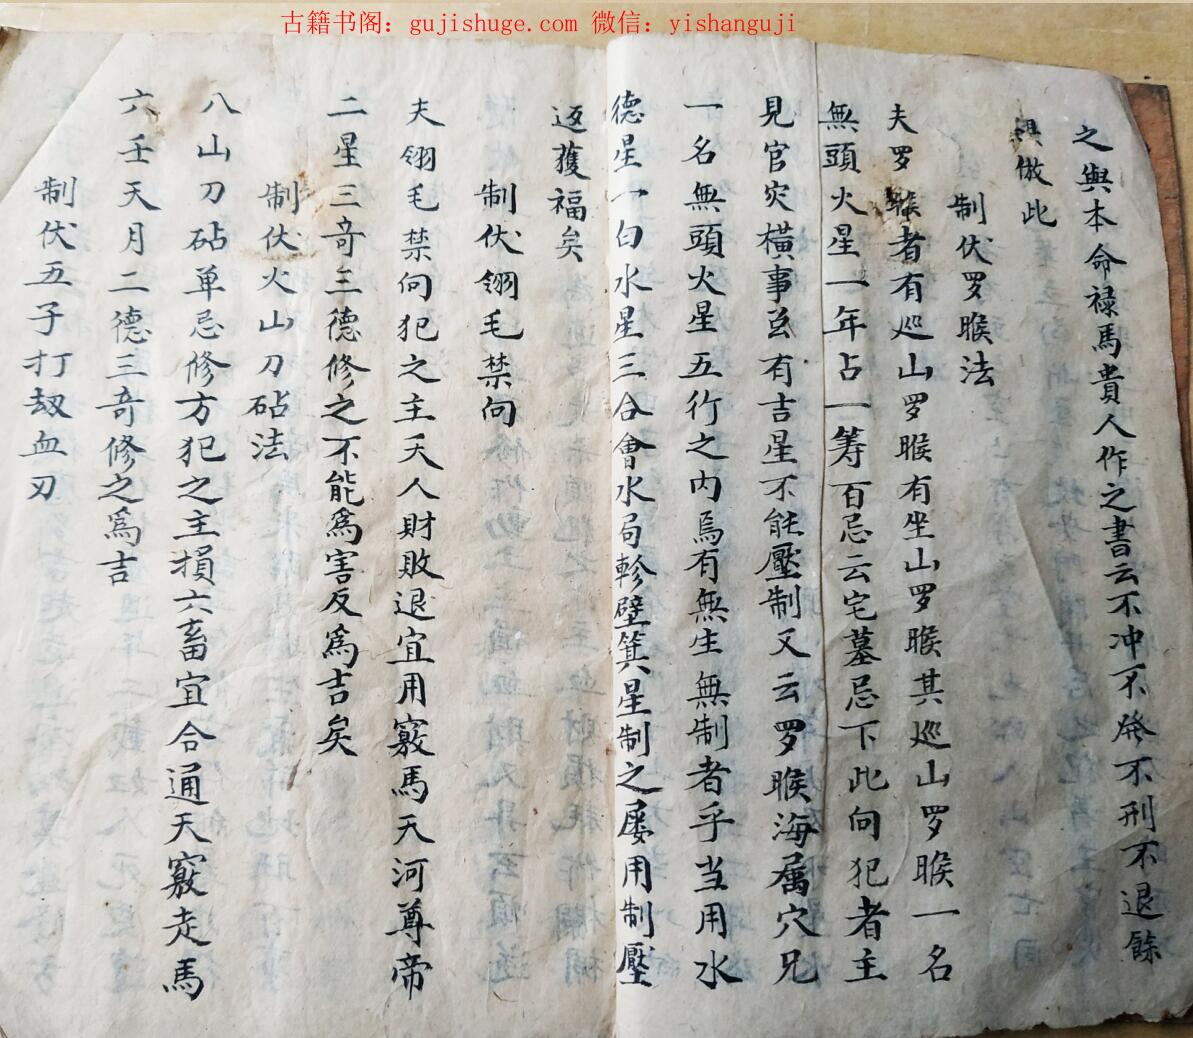 古籍书阁：gujishuge.com 微信：yishanguji
之與本命禄馬貴人作之書云不冲不發不刑不退餘
俱倣此
制伏罗睺法
夫罗睺者有巡山罗睺有坐山罗睺其巡山罗睺一名
無頭火星一年占一筹百忌云宅墓忌下此向犯者主
見官灾橫事並有吉星不能壓制又云罗睺海属穴兄
一名無頭火星五行之内焉有無生無制者乎当用水
德星一白水星三合會水局軫壁箕星制之屡用制壓
返獲福矣
制伏翎毛禁向
夫翎毛禁向犯之主夭人財敗退宜用竅馬天河尊帝
二星三竒三德修之不能爲害反爲吉矣
制伏火山刀砧法
八山刀砧单忌修方犯之主損六畜宜合通天竅走馬
六壬天月二德三竒修之爲吉
制伏五子打劫血刃